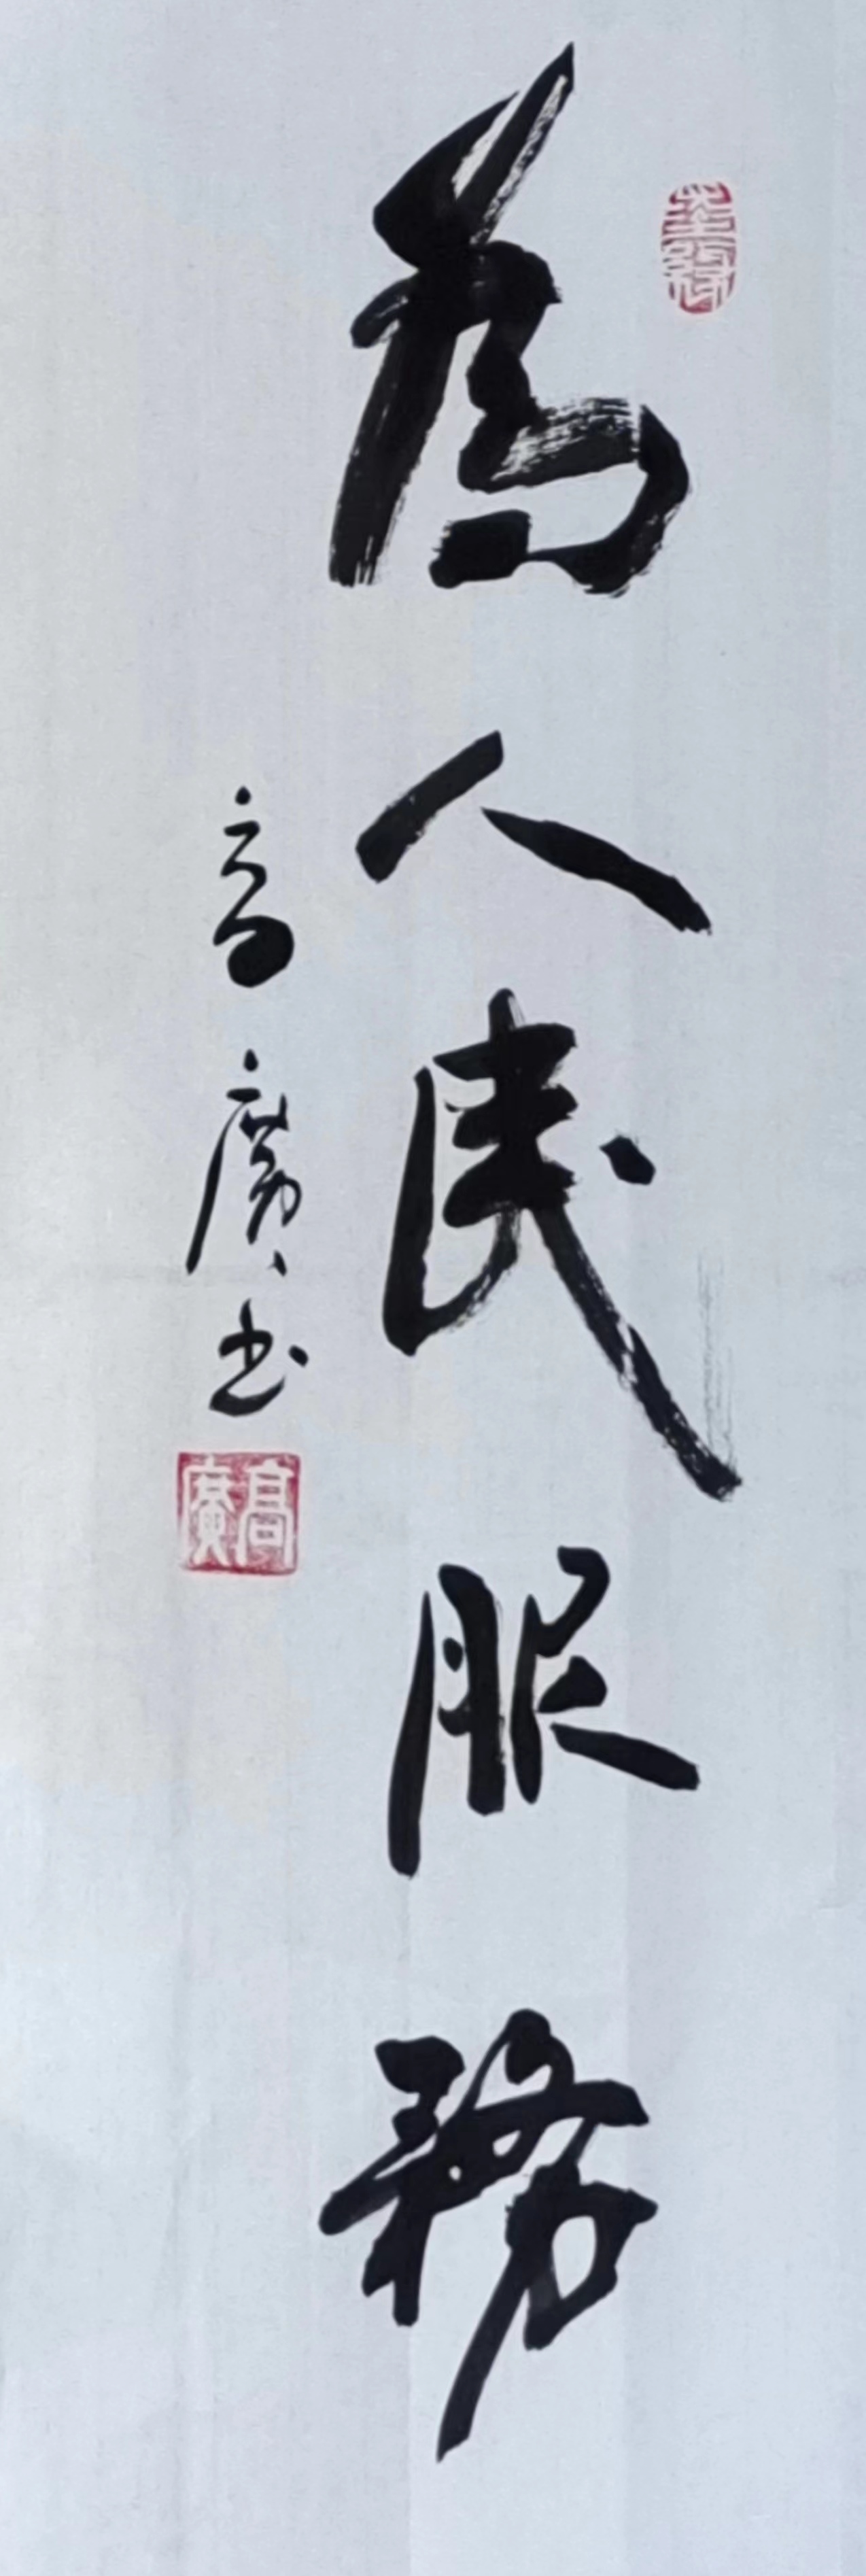 為人民服務
高廣书
高廣